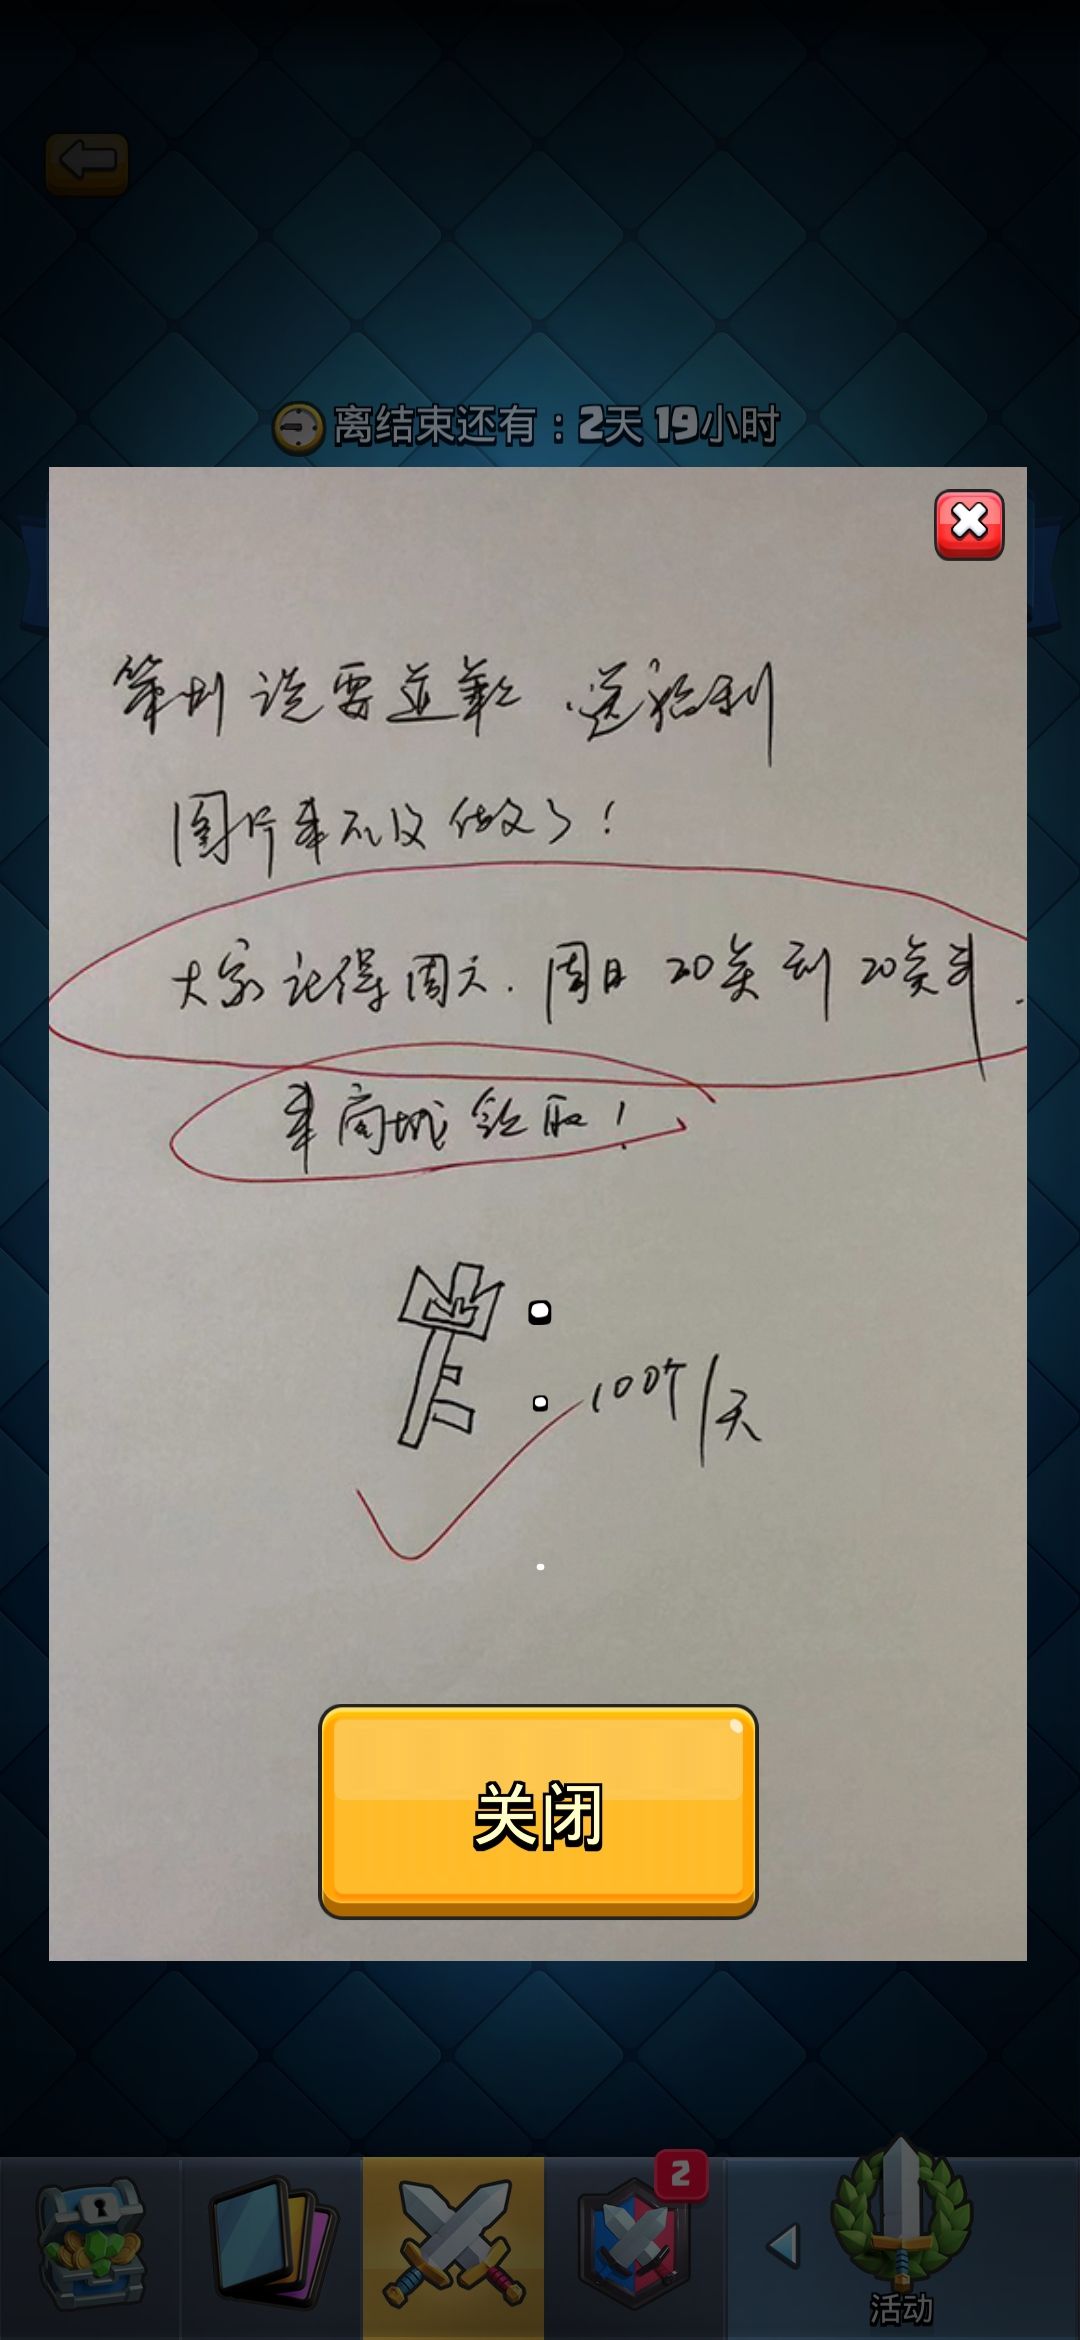 离结束还有：2天 19小时
策划说要道歉，送福利
图片来不及做了！
大家记得周六.周日 20点到20点半.
来商城领取！
100个/天
关闭
2
活动